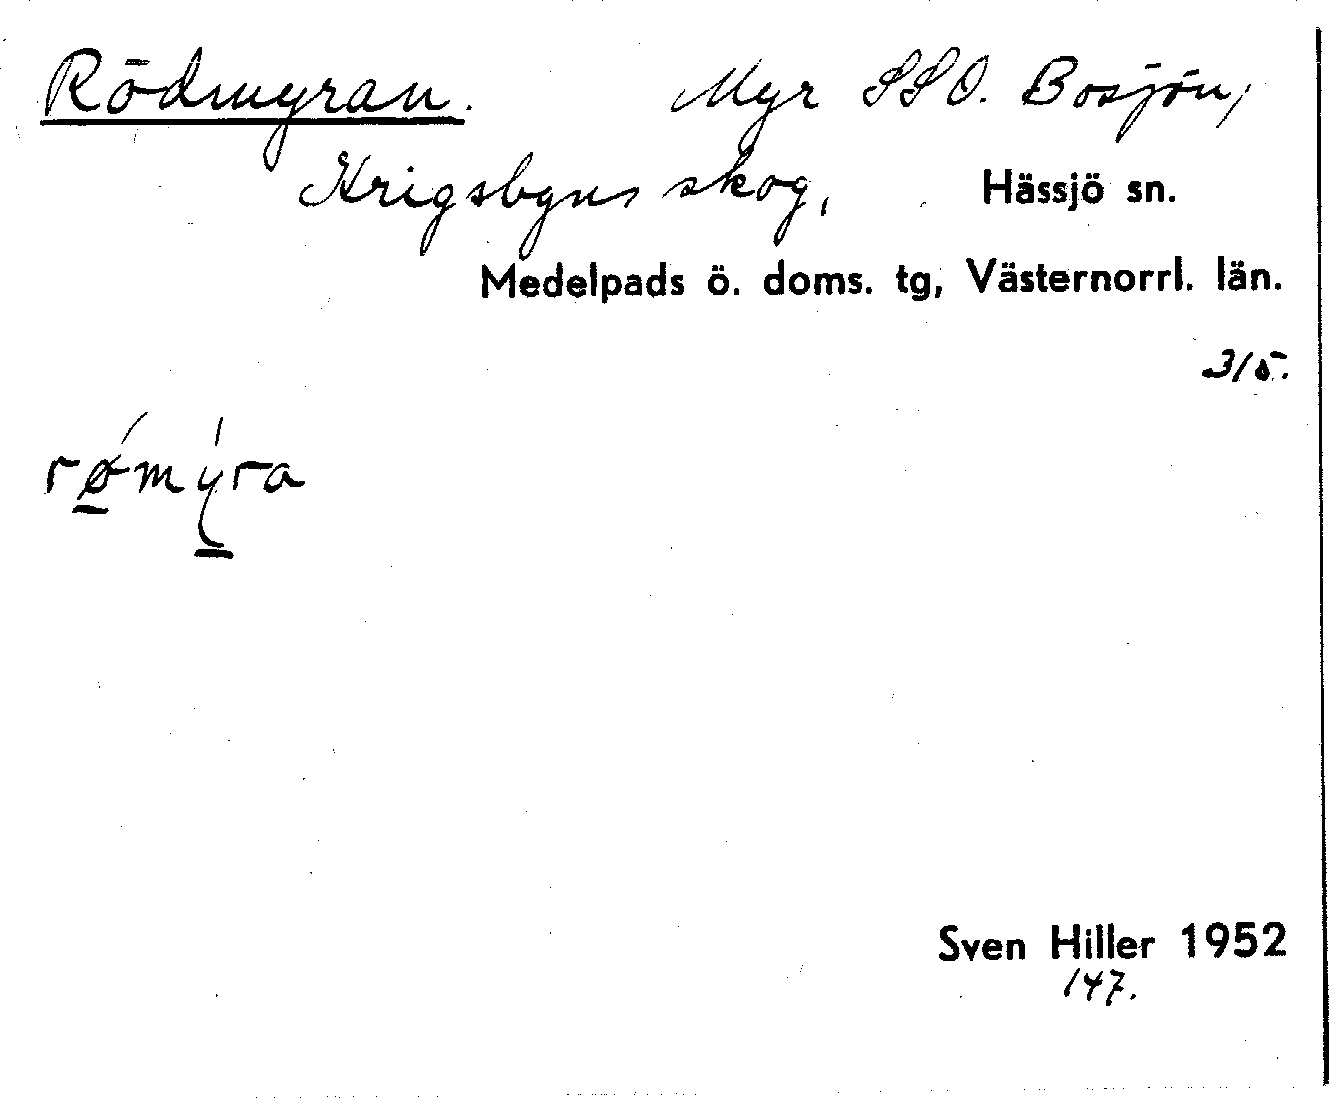 Rödmyran. Myr SSO. Bosjön,
Krigsbyns skog, Hässjö sn.
Medelpads ö. doms. tg, Västernorrl. län.
3/5.
rǿ̱mý̱ra
Sven Hiller 1952
147.